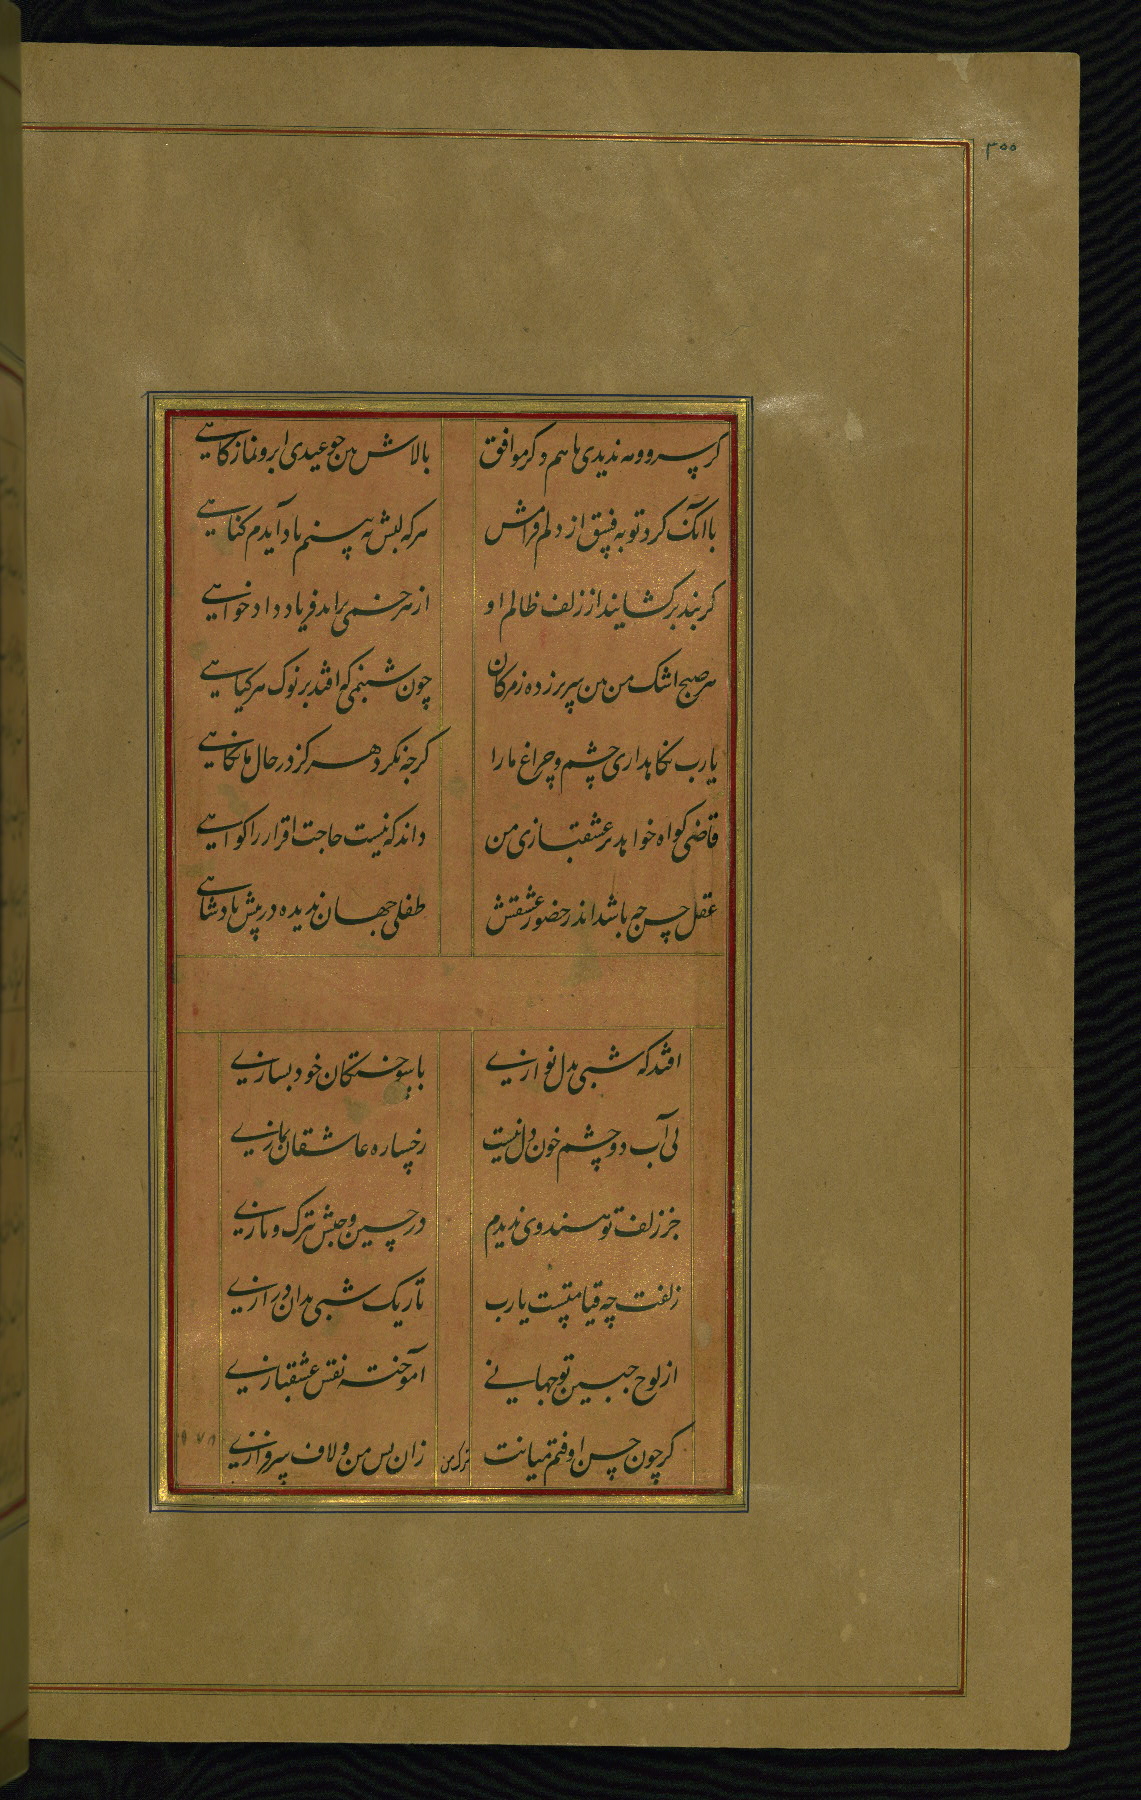 ۳۰۰
کر سرو و مه ندیدی باهم دکر موافق بالاش بین جو عیدی ابرو نماز کاهی
با انک کرد توبه فسق از دلم فرامش هر که لبش به بینم یاد آیدم کناهی
کر بند برکشایند از زلف ظالم او از هر خمی براید فریاد داد خواهی
هر صبح اشک من بین سر بر زده ز مژکان چون شبنمی که افتد بر نوک هر کیاهی
یارب نکاهداری چشم و چراغ ما را کرجه نکرد هرکز در حال ما نکاهی
قاضی کواه خواهد بر عشقبازی من داند که نیست حاجت اقرار را کواهی
عقل حسن جه باشد اندر حضور عشقش طفلی جهان ندیده در پیش پادشاهی
افتد که شبی بدل نوازی با سوختکان خود بسازی
بی آب دو چشم خون دل نیست رخساره عاشقان نمازی
جز زلف تو هندوی ندیدم در چین و حبش بترک و تازی
زلفت چه قیامتیست یارب تاریک شبی بدان درازی
از لوح جبین تو جهانی آموخته نقش عشقبازی
کر چون حسن اوفتم میانت زان پس من و لاف سرفرازی
ترک من